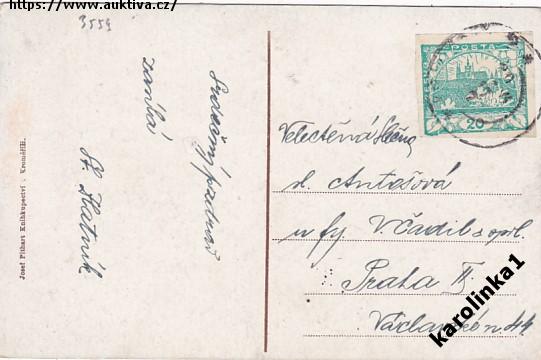 https://www.auktiva.cz/
3559
Srdečný pozdrav
zasílá
St. Hatník
Josef Píthart Knihkupectví - Kroměříž.
POSTA
20
Velectěná slečna
A. Antošová
u fy V. Čadil a spol.
Praha II.
Václavské n 44
karolinka1